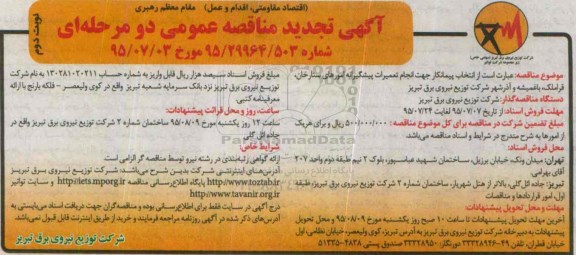 (اقتصاد مقاومتی، اقدام و عمل) مقام معظم رهبری
آگهی تجدید مناقصه عمومی دو مرحله‌ای
شماره ۹۵/۲۹۹۶۴/۵۰۳ مورخ ۹۵/۰۷/۰۳
نوبت دوم
شرکت توزیع نیروی برق تبریز
موضوع مناقصه: عبارت است از انتخاب پیمانکار جهت انجام تعمیرات پیشگیرانه امورهای ستارخان،
قراملک، باغمیشه و آذرشهر شرکت توزیع نیروی برق تبریز
دستگاه مناقصه‌گذار: شرکت توزیع نیروی برق تبریز
مهلت فروش اسناد: از تاریخ ۹۵/۰۷/۰۷ لغایت ۹۵/۰۷/۲۴
مبلغ تضمین شرکت در مناقصه برای کل موضوع مناقصه: ۵۰۰/۰۰۰/۰۰۰ ریال و برای هریک
از امورها به شرح مندرج در شرایط و اسناد مناقصه می‌باشد.
محل فروش اسناد:
تهران: میدان ونک، خیابان برزیل، ساختمان شهید عباسپور، بلوک ۲ نیم طبقه دوم واحد ۲۰۷
آقای بهرامی.
تبریز: جاده ائل گلی، بالاتر از هتل شهریار، ساختمان شماره ۲ شرکت توزیع نیروی برق تبریز، طبقه
اول، امور قراردادها و مناقصات
مهلت و محل تحویل پیشنهادات:
آخرین مهلت تحویل پیشنهادات تا ساعت ۱۰ صبح روز یکشنبه مورخ ۹۵/۰۸/۰۹ و محل تحویل
پیشنهادات به دبیرخانه شرکت توزیع نیروی برق تبریز به آدرس تبریز، کوی ولیعصر، خیابان نظامی، اول
خیابان قطران، تلفن ۴۹-۳۳۳۲۸۹۴۶ دورنگار: ۳۳۳۲۸۹۵۰ صندوق پستی ۴۸۳۸-۵۱۳۳۵
مبلغ فروش اسناد سیصد هزار ریال قابل واریز به شماره حساب ۰۱۳۰۲۸۱۰۲۰۲۱۱ به نام شرکت
توزیع نیروی برق تبریز نزد بانک سرمایه شعبه تبریز واقع در کوی ولیعصر - فلکه بارنج با ارائه
معرفینامه کتبی
ساعت، روز و محل قرائت پیشنهادات:
ساعت ۱۲ روز یکشنبه مورخ ۹۵/۰۸/۰۹ ساختمان شماره ۲ شرکت توزیع نیروی برق تبریز واقع در
جاده ائل گلی
شرایط خاص:
ارائه گواهی رتبه‌بندی در رشته نیرو توسط مناقصه گر الزامی است
آدرس‌های اینترنتی شرکت بدین شرح می‌باشد: شرکت توزیع نیروی برق تبریز
http://www.toztab.ir پایگاه اطلاع‌رسانی مناقصه http://iets.mporg.ir و سایت توانیر
http://www.tavanir.org.ir
درج آگهی در سایت فقط برای اطلاع‌رسانی بوده و مناقصه‌گران جهت دریافت اسناد می‌بایستی به
آدرس‌های ذکر شده در آگهی روزنامه مراجعه فرمایند و خرید از طریق اینترنت قابل قبول نمی‌باشد.
شرکت توزیع نیروی برق تبریز